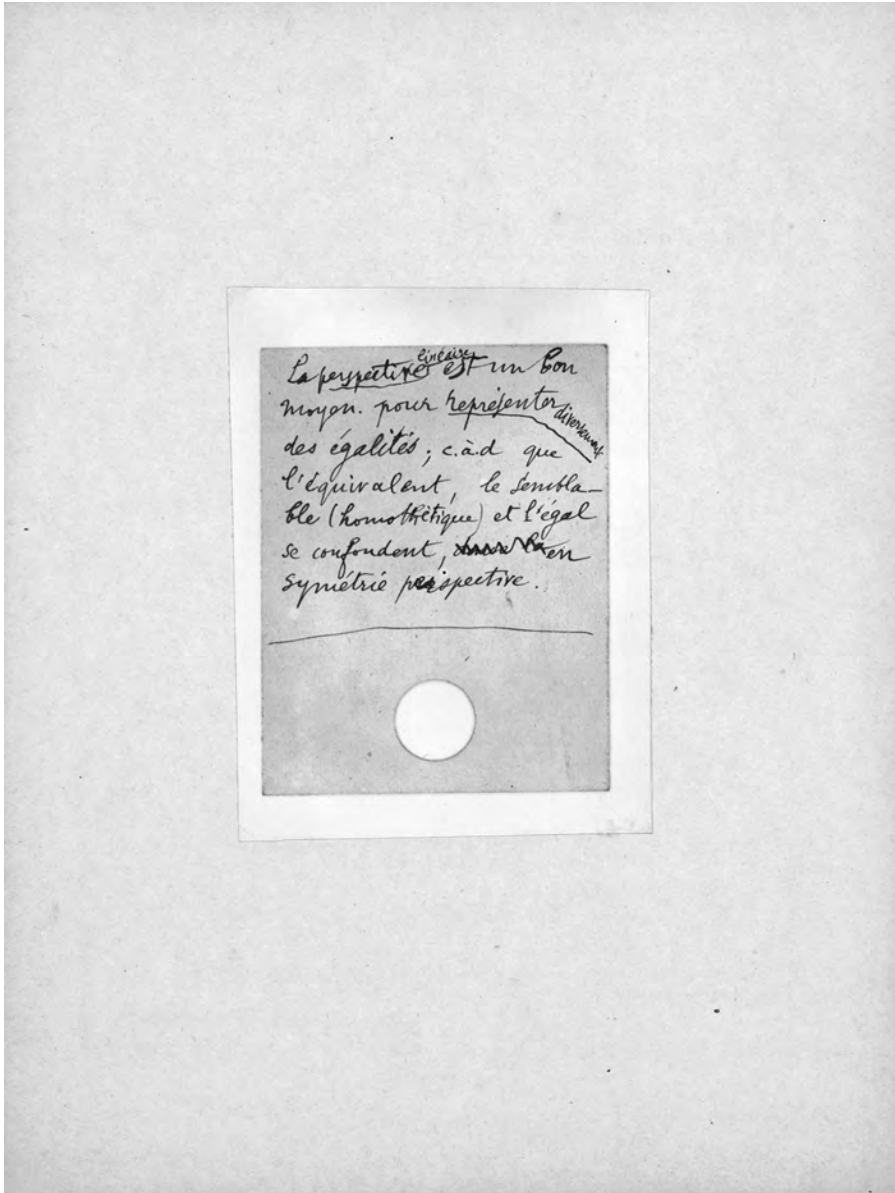 La perspective linéaire est un bon
moyen. pour représenter diversement
des égalités; c.à.d que
l'équivalent, le sembla-
ble (homothétique) et l'égal
se confondent, en
symétrie perspective.